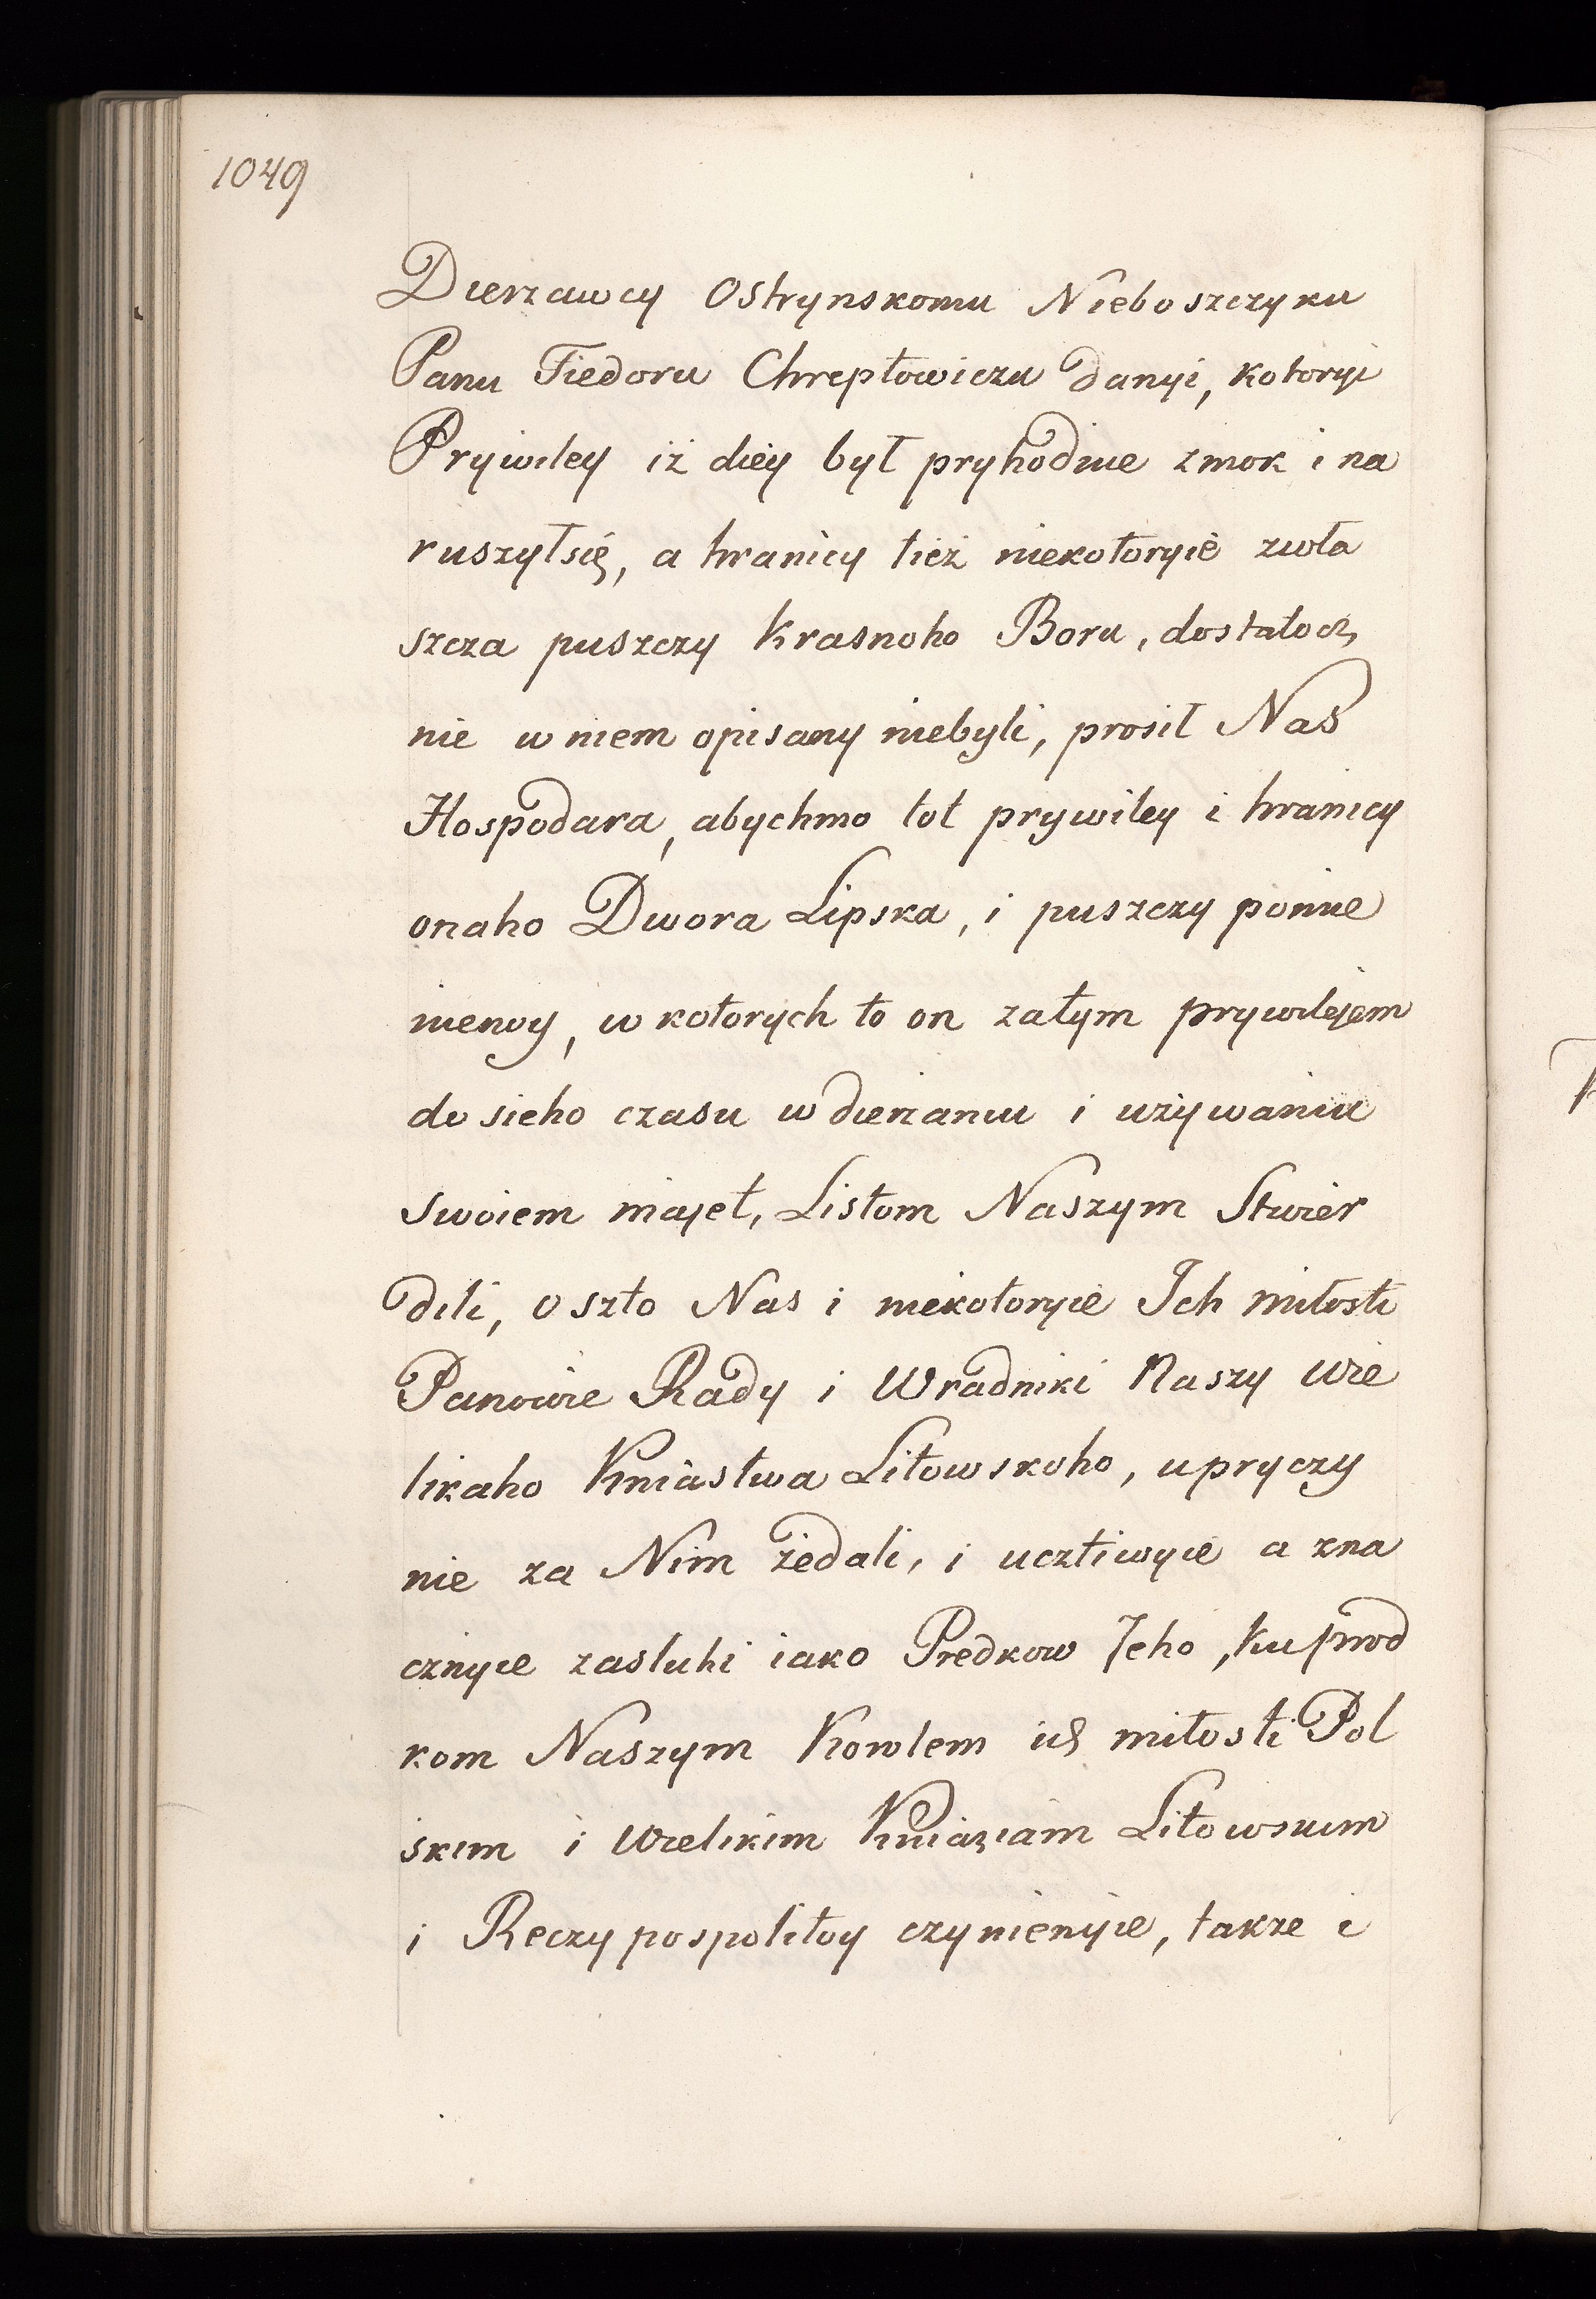 1049
Dierzawcy Ostrynskomu Nieboszczyku
Panu Fiedoru Chreptowiczu danyi, kotoryi
Prywiley iż diey był pryhodnie zmok i na
ruszyłsię, a hranicy tież niekotoryie zwła
szcza puszczy Krasnoho Boru, dostatocz
nie w niem opisany niebyli, prosił Nas
Hospodara, abychmo tot prywiley i hranicy
onaho Dwora Lipska, i puszczy pomie
nienoy, w kotorych to on zatym prywilejem
do sieho czasu w dierżaniu i używaniu
Swoiem majet, Listom Naszym Stwier
dili, o szto Nas i niekotoryie Ich miłosti
Panowie Rady i Wradniki Naszy Wie
likaho Kniastwa Litowskoho, u pryczy
nie za Nim żedali, i ucztiwyie a zna
cznyie zasluhi iako Predkow Jeho, ku prod
kom Naszym Korolem ich miłosti Pol
skim i Wielikim Kniaziam Litowskim
i Reczy pospolitoy czynienyie, takze i